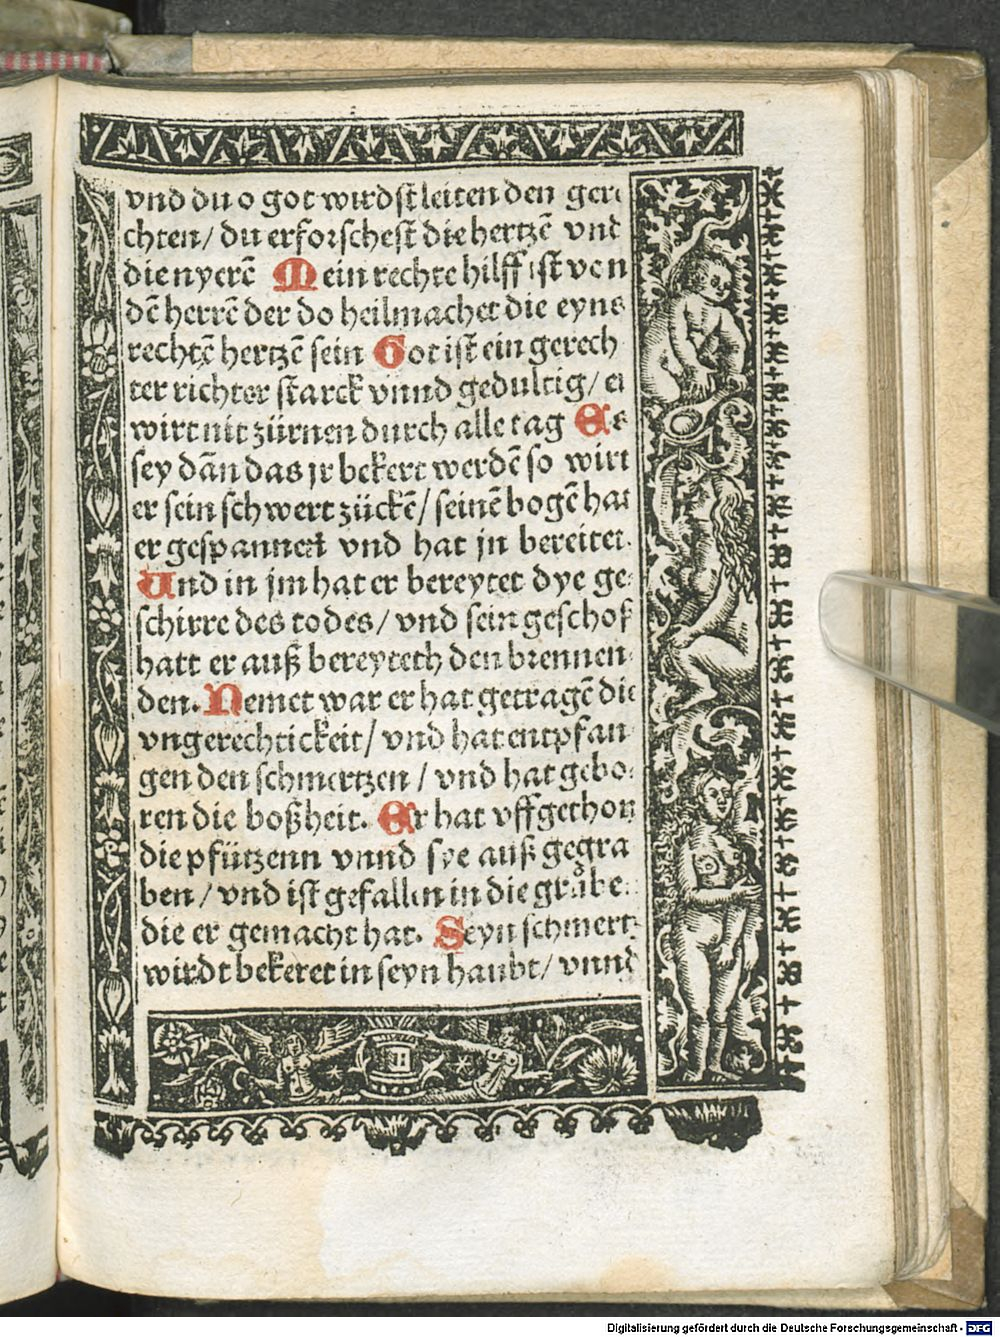 vnd du o got wirdst leiten den geri
chten / du erforschest die hertzē vnd
die nyerē Mein rechte hilff ist von
dē herrē der do heilmachet die eyns
rechtē hertzē sein Got ist ein gerech
ter richter starck vnnd gedultig / er
wirt nit zürnen durch alle tag Es
sey dān das jr bekert werdē so wirt
er sein schwert zückē / seinē bogē hat
er gespannet vnd hat jn bereitet.
Vnd in jm hat er bereytet dye ge:
schirre des todes / vnd sein geschoß
hatt er auß bereyteth den brennen:
den. Nemet war er hat getragē die
vngerechtickeit / vnd hat entpfan
gen den schmertzen / vnd hat gebo:
ren die boßheit. Er hat vffgethon
die pfützenn vnnd sye auß gegra
ben / vnd ist gefallen in die grůbe:
die er gemacht hat. Seyn schmertz
wirdt bekeret in seyn haubt / vnnd
Digitalisierung gefördert durch die Deutsche Forschungsgemeinschaft - DFG